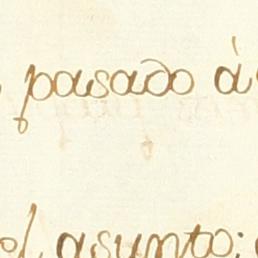 pasado á
el asunto: